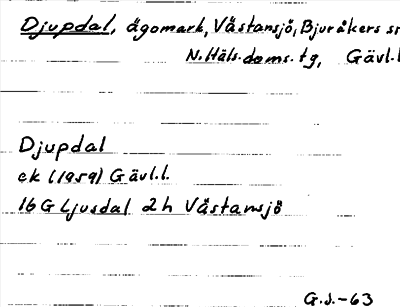 Djupdal, ägomark, Västansjö, Bjuråkers sn
N. Häls. doms. tg, Gävl. l
Djupdal
ek (1959) Gävl. l.
16 G Ljusdal 2 h Västansjö
G.J.-63